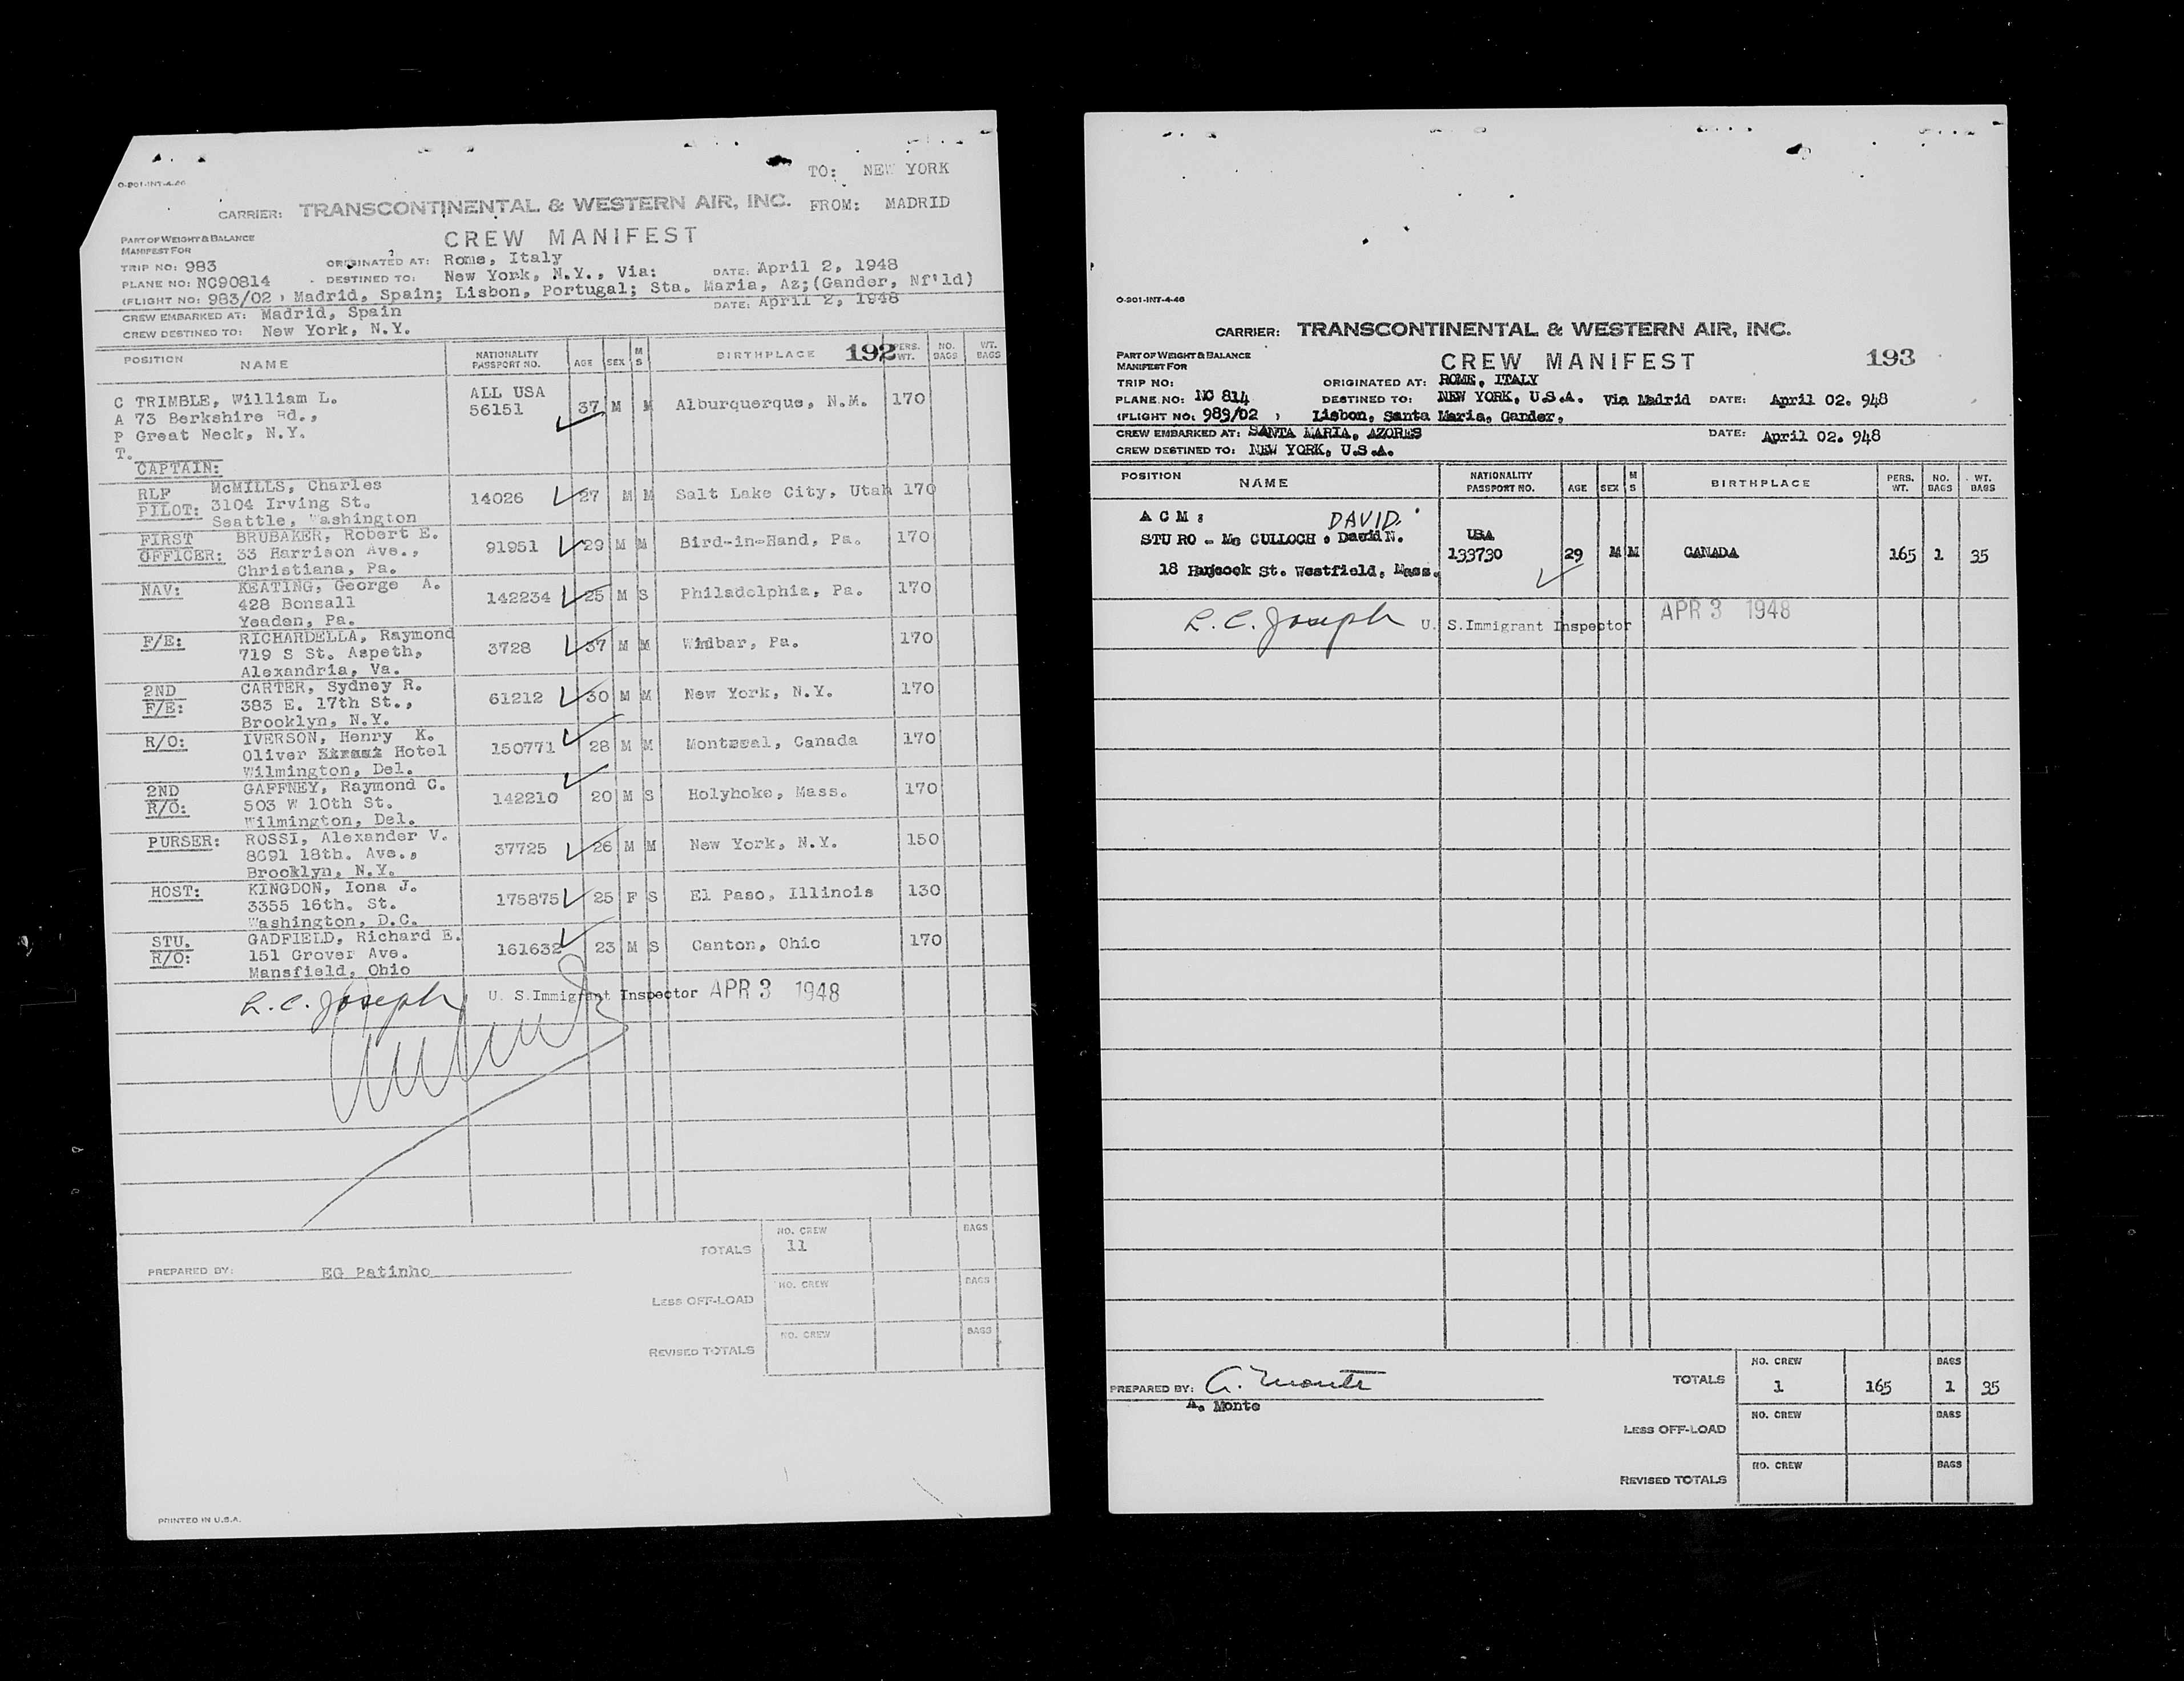 TO: NEW YORK
O-901-INT-4-46
CARRIER: TRANSCONTINENTAL & WESTERN AIR, INC. FROM: MADRID
PART OF WEIGHT & BALANCE
MANIFEST FOR
CREW MANIFEST
TRIP NO: 983 ORIGINATED AT: Rome, Italy
PLANE NO: NC90814 DESTINED TO: New York, N.Y., Via: DATE: April 2, 1948
(FLIGHT NO: 983/02 ) Madrid, Spain; Lisbon, Portugal; Sta. Maria, Az;(Gander, Nf'ld)
CREW EMBARKED AT: Madrid, Spain DATE: April 2, 1948
CREW DESTINED TO: New York, N.Y.
POSITION NAME NATIONALITY PASSPORT NO. AGE SEX M S BIRTHPLACE 192 PERS. WT. NO. BAGS WT. BAGS
C TRIMBLE, William L. ALL USA
A 73 Berkshire Rd., 56151 37 M M Alburquerque, N.M. 170
P Great Neck, N.Y.
T.
CAPTAIN:
RLF McMILLS, Charles
PILOT: 3104 Irving St. 14026 27 M M Salt Lake City, Utah 170
Seattle, Washington
FIRST BRUBAKER, Robert E.
OFFICER: 33 Harrison Ave., 91951 29 M M Bird-in-Hand, Pa. 170
Christiana, Pa.
NAV: KEATING, George A.
428 Bonsall 142234 25 M S Philadelphia, Pa. 170
Yeaden, Pa.
F/E: RICHARDELLA, Raymond
719 S St. Aspeth, 3728 37 M M Windbar, Pa. 170
Alexandria, Va.
2ND CARTER, Sydney R.
F/E: 383 E. 17th St., 61212 30 M M New York, N.Y. 170
Brooklyn, N.Y.
R/O: IVERSON, Henry K.
Oliver Hotel 150771 28 M M Montreal, Canada 170
Wilmington, Del.
2ND GAFFNEY, Raymond C.
R/O: 503 W 10th St. 142210 20 M S Holyhoke, Mass. 170
Wilmington, Del.
PURSER: ROSSI, Alexander V.
8691 18th. Ave., 37725 26 M M New York, N.Y. 150
Brooklyn, N.Y.
HOST: KINGDON, Iona J.
3355 16th. St. 175875 25 F S El Paso, Illinois 130
Washington, D.C.
STU. GADFIELD, Richard E.
R/O: 151 Grover Ave. 161632 23 M S Canton, Ohio 170
Mansfield, Ohio
L.C. Joseph U. S. Immigrant Inspector APR 3 1948
TOTALS NO. CREW 11 BAGS
PREPARED BY: EG Patinho
LESS OFF-LOAD NO. CREW BAGS
REVISED TOTALS NO. CREW BAGS
PRINTED IN U.S.A.
O-901-INT-4-46
CARRIER: TRANSCONTINENTAL & WESTERN AIR, INC.
PART OF WEIGHT & BALANCE
MANIFEST FOR
CREW MANIFEST 193
TRIP NO: ORIGINATED AT: ROME, ITALY
PLANE NO: NC 814 DESTINED TO: NEW YORK, U.S.A. Via Madrid DATE: April 02. 948
(FLIGHT NO: 983/02 ) Lisbon, Santa Maria, Gander,
CREW EMBARKED AT: SANTA MARIA, AZORES DATE: April 02. 948
CREW DESTINED TO: NEW YORK, U.S.A.
POSITION NAME NATIONALITY PASSPORT NO. AGE SEX M S BIRTHPLACE PERS. WT. NO. BAGS WT. BAGS
A C M : DAVID
STU RO - Mc CULLOCH , David N. USA
133730 29 M M CANADA 165 1 35
18 Hancock St. Westfield, Mass.
L.C. Joseph U. S. Immigrant Inspector APR 3 1948
TOTALS NO. CREW 1 165 BAGS 1 35
PREPARED BY: A. Monte
A. Monte
LESS OFF-LOAD NO. CREW BAGS
REVISED TOTALS NO. CREW BAGS